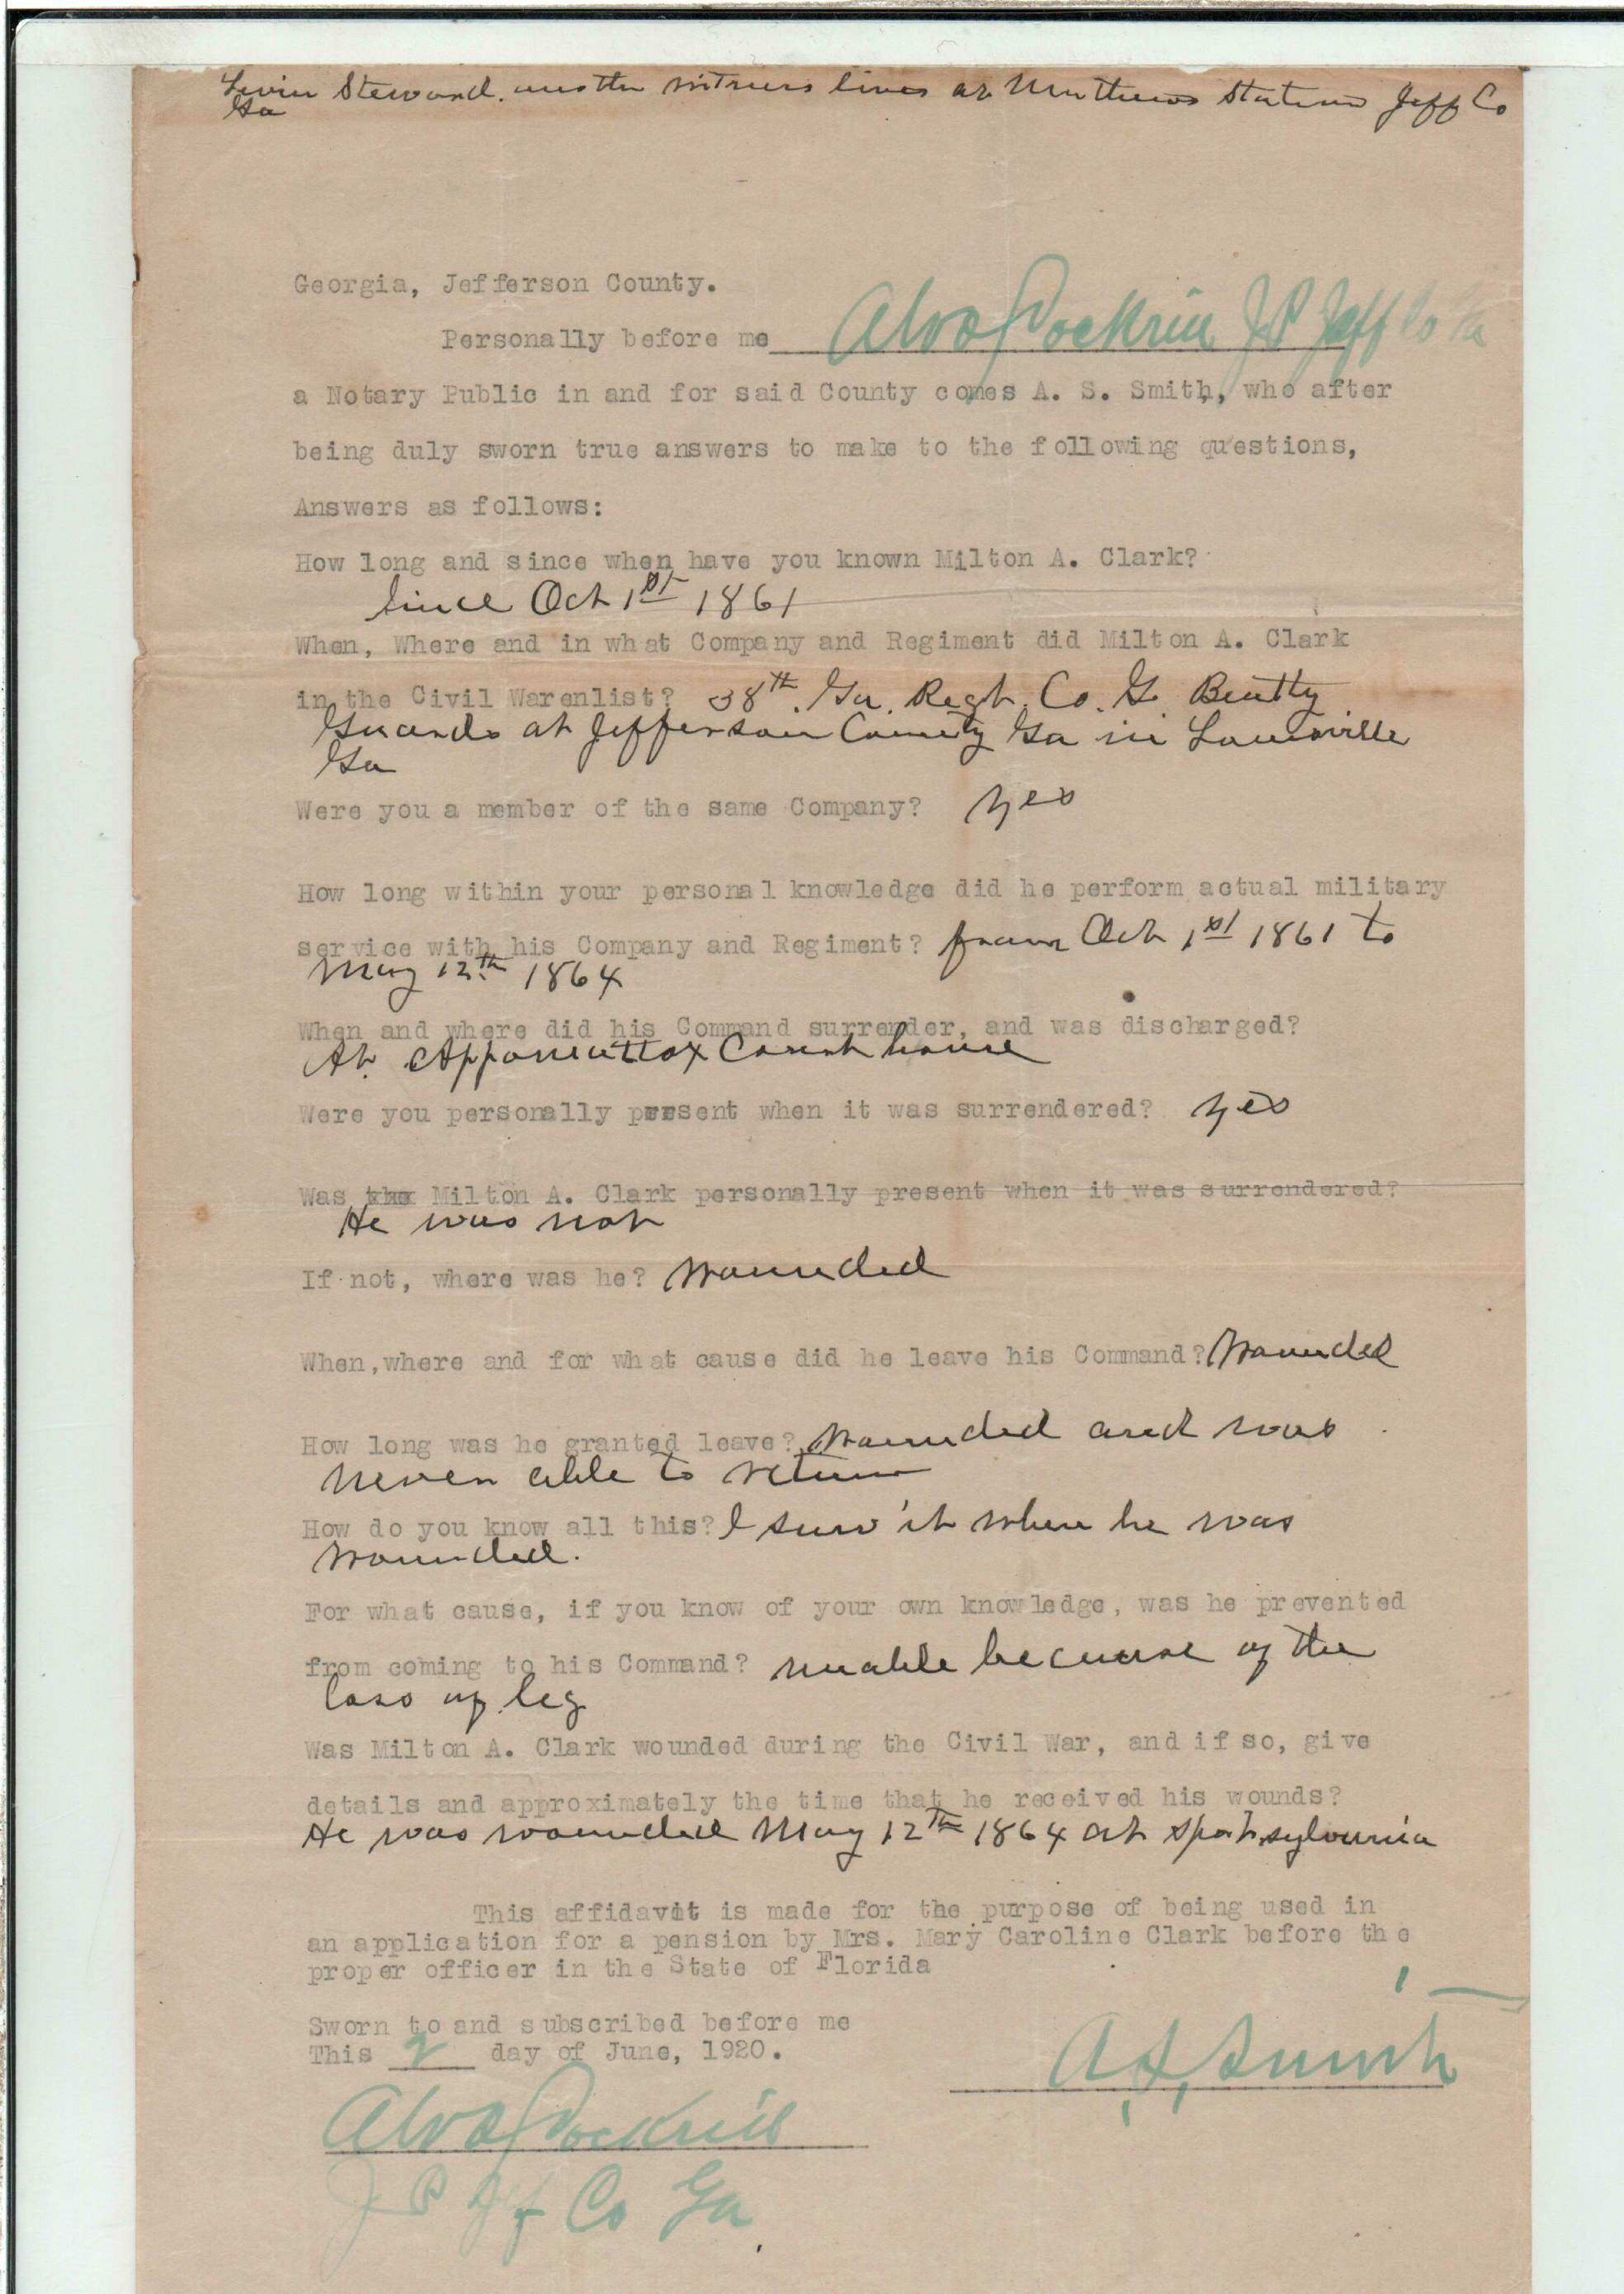 Steward. another witness lives at Mathews Station Jeff Co
Ga
Georgia, Jefferson County.
Personally before me Alvo J Pockrill J P Jeff Co Ga
a Notary Public in and for said County comes A. S. Smith, who after
being duly sworn true answers to make to the following questions,
Answers as follows:
How long and since when have you known Milton A. Clark?
Since Oct 1st 1861
When, Where and in what Company and Regiment did Milton A. Clark
in the Civil Warenlist? 38th. Ga. Regt. Co. G. Beatty
Guards at Jefferson County Ga in Louisville
Ga
Were you a member of the same Company? yes
How long within your personal knowledge did he perform actual military
service with his Company and Regiment? from Oct 1st 1861 to
May 12th 1864
When and where did his Command surrender, and was discharged?
At Appomattox Court house
Were you personally present when it was surrendered? yes
Was the Milton A. Clark personally present when it was surrendered?
He was not
If not, where was he? Wounded
When,where and for what cause did he leave his Command? Wounded
How long was he granted leave? Wounded and was
never able to return
How do you know all this? I saw it when he was
wounded.
For what cause, if you know of your own knowledge, was he prevented
from coming to his Command? unable because of the
loss of leg
Was Milton A. Clark wounded during the Civil War, and if so, give
details and approximately the time that he received his wounds?
He was wounded May 12th 1864 at Spotsylvania
This affidavit is made for the purpose of being used in
an application for a pension by Mrs. Mary Caroline Clark before the
proper officer in the State of Florida
Sworn to and subscribed before me
This 2 day of June, 1920.
A. S. Smith
Alvo J Pockrill
J P Jeff Co Ga